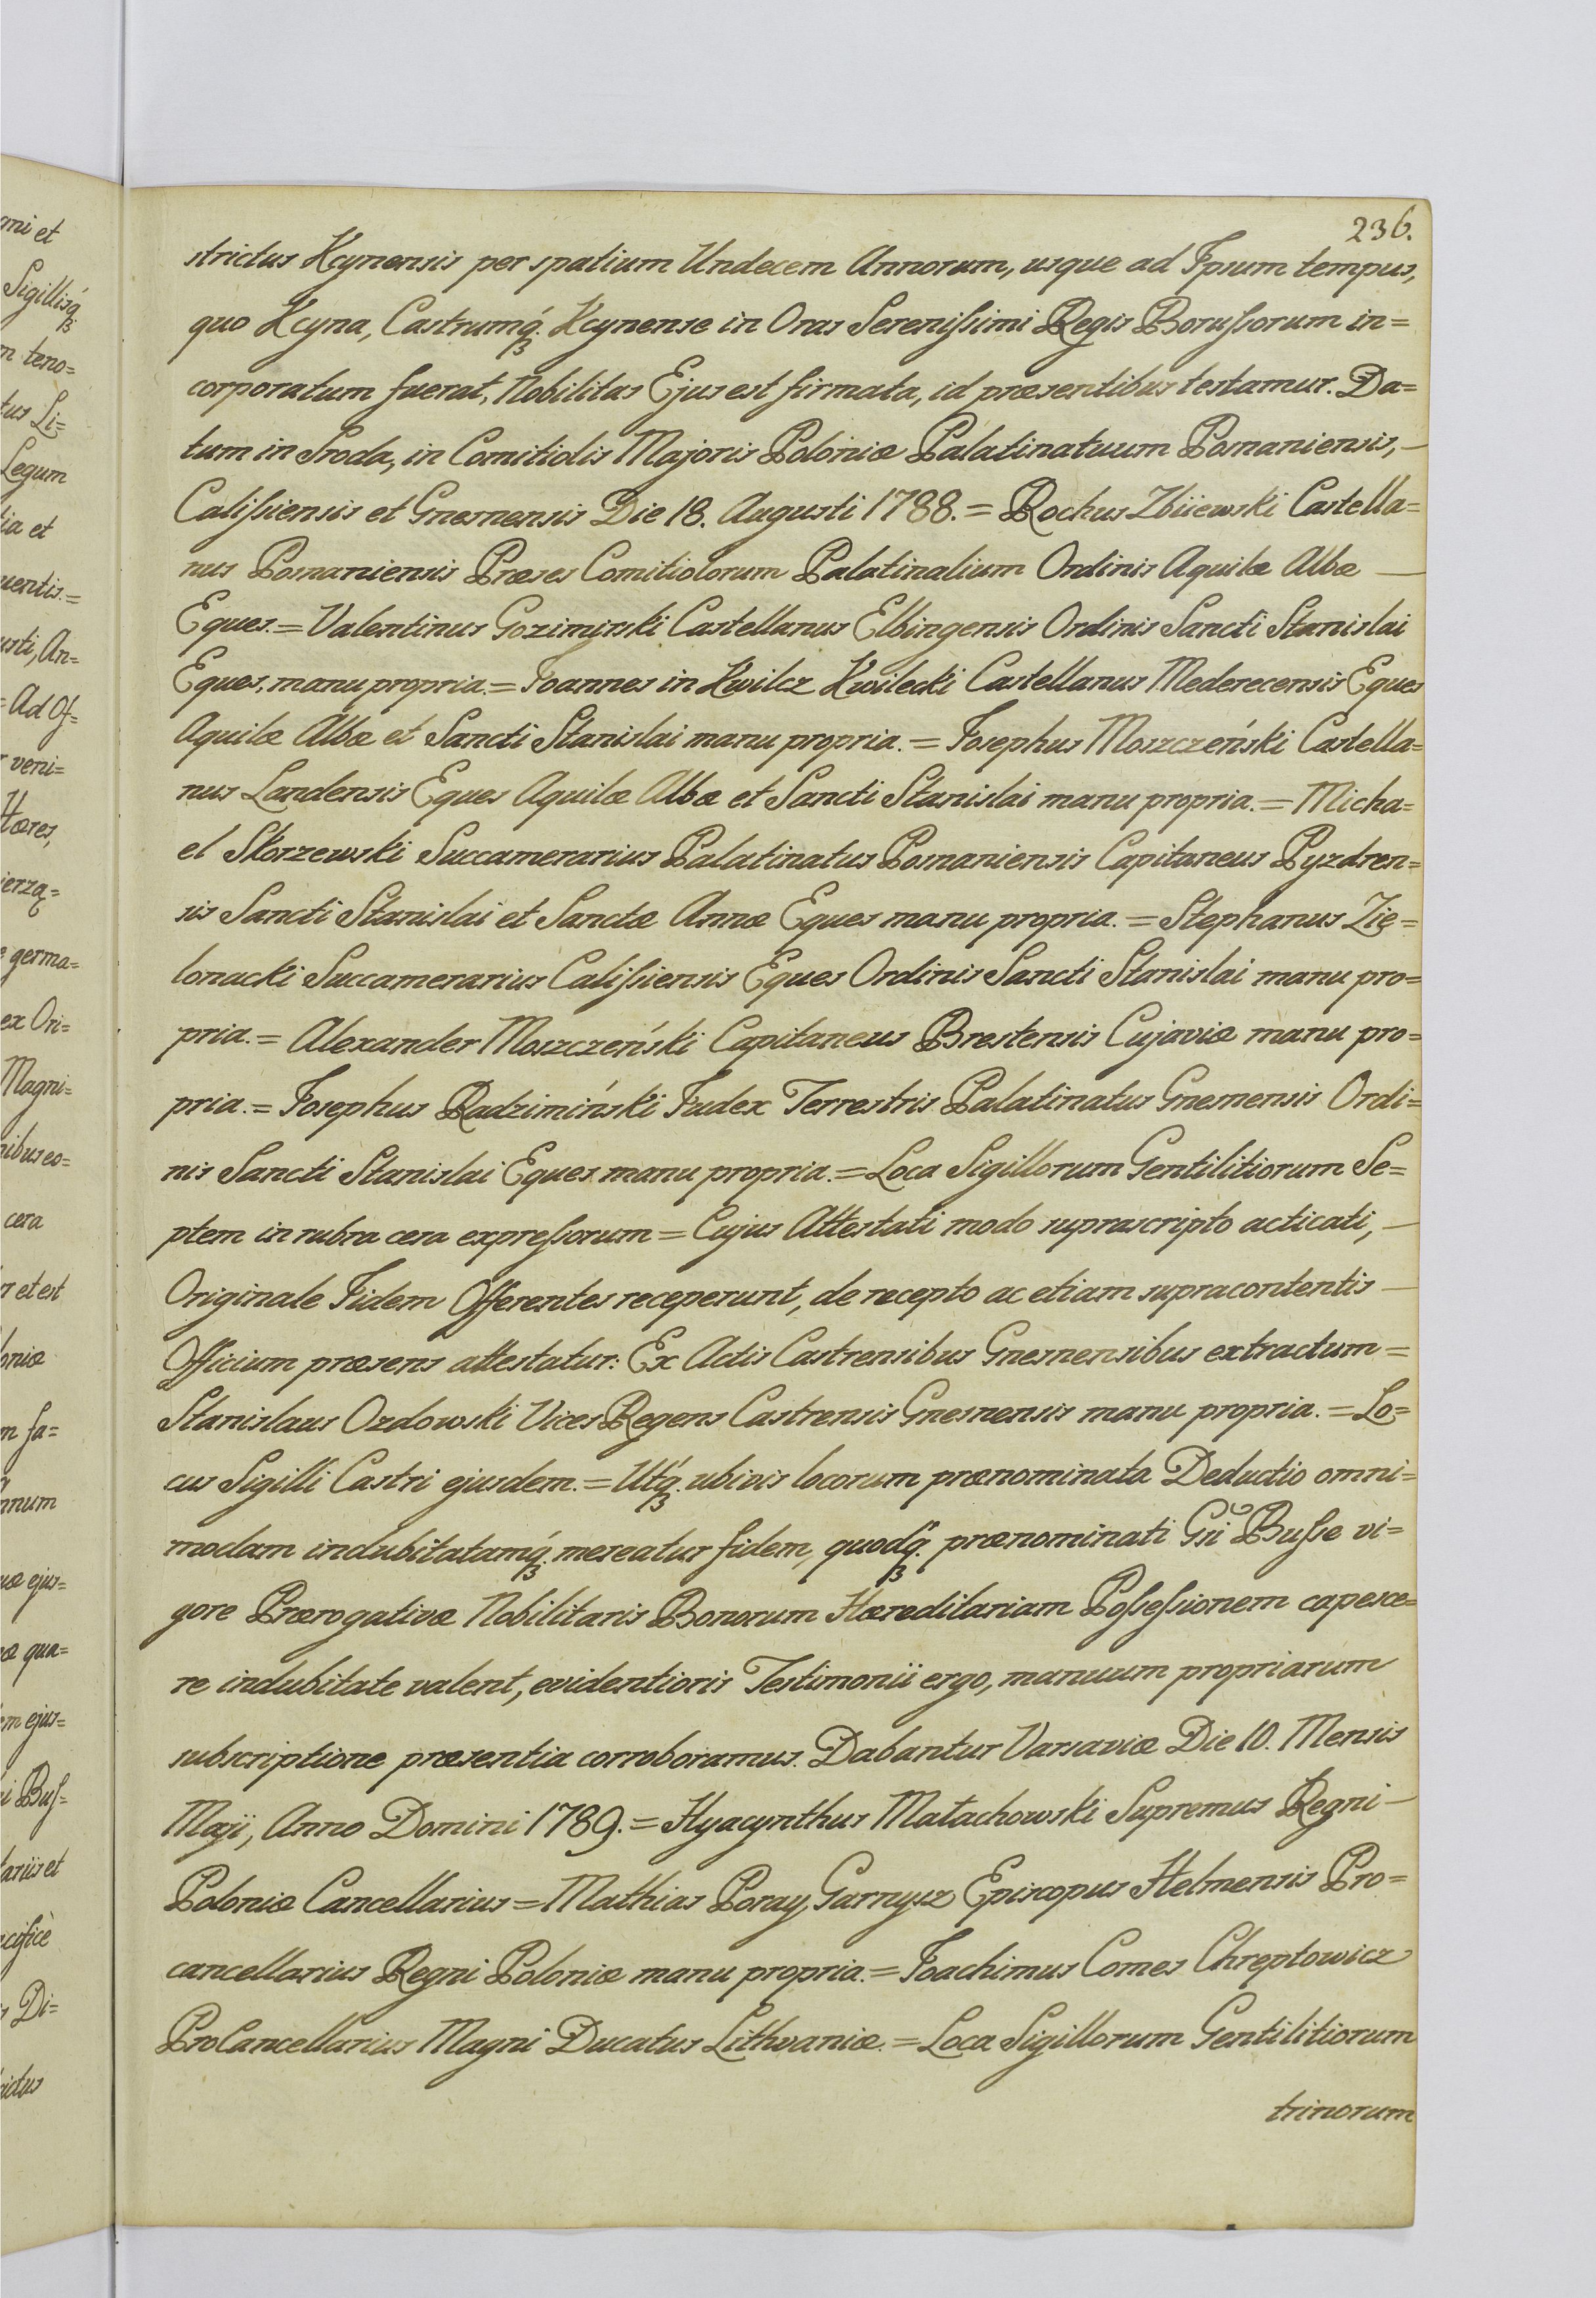 236.
strictus Kcynensis per spatium Undecem Annorum, usque ad Ipsum tempus,
quo Kcyna, Castrumq́ꝫ. Kcynense in Oras Serenißimi Regis Borußorum in=
corporatum fuerat, Nobilitas Ejus est firmata, id præsentibus testamur. Da=
tum in Sroda, in Comitiolis Majoris Poloniæ Palatinatuum Posnaniensis,—
Calißiensis et Gnesnensis Die 18. Augusti 1788.= Rochus Zbiiewski Castella=
nus Posnaniensis Præses Comitiolorum Palatinalium Ordinis Aquilæ Albæ —
Eques.= Valentinus Gozimirski Castellanus Elbingensis Ordinis Sancti Stanislai
Eques, manu propria.= Joannes in Kwilcz Kwilecki Castellanus Mederecensis Eques
Aquilæ Albæ et Sancti Stanislai manu propria.= Josephus Moszczeński Castella=
nus Landensis Eques Aquilæ Albæ et Sancti Stanislai manu propria.= Micha=
el Skorzewski Succamerarius Palatinatus Posnaniensis Capitaneus Pyzdren=
sis Sancti Stanislai et Sanctæ Annæ Eques manu propria.= Stephanus Zię=
lonacki Succamerarius Calißiensis Eques Ordinis Sancti Stanislai manu pro=
pria.= Alexander Moszczeński Capitaneus Brestensis Cujaviæ manu pro=
pria.= Josephus Radzimiński Judex Terrestris Palatinatus Gnesnensis Ordi=
nis Sancti Stanislai Eques manu propria.= Loca Sigillorum Gentilitiorum Se=
ptem in rubra cera expreßorum = Cujus Attestati modo suprascripto acticati,—
Originale Iidem Offerentes receperunt, de recepto ac etiam supracontentis —
Officium præsens attestatur: Ex Actis Castrensibus Gnesnensibus extractum=
Stanislaus Ozdowski Vices Regens Castrensis Gnesnensis manu propria.= Lo=
cus Sigilli Castri ejusdem.= Utq́ꝫ. ubivis locorum prænominata Deductio omni=
modam indubitatamq́ꝫ. mereatur fidem, quodq́ꝫ. prænominati Gñi Buße vi=
gore Prærogativæ Nobilitaris Bonorum Hæreditariam Poßeßionem capesce=
re indubitate valent, evidentioris Testimonii ergo, manuum propriarum
subscriptione præsentia corroboramus. Dabantur Varsaviæ Die 10. Mensis
Maji, Anno Domini 1789.= Hyacynthus Małachowski Supremus Regni—
Poloniæ Cancellarius= Mathias Poray Garnysz Episcopus Helmensis Pro=
cancellarius Regni Poloniæ manu propria.= Joachimus Comes Chreptowicz
ProCancellarius Magni Ducatus Lithvaniæ.= Loca Sigillorum Gentilitiorum
trinorum